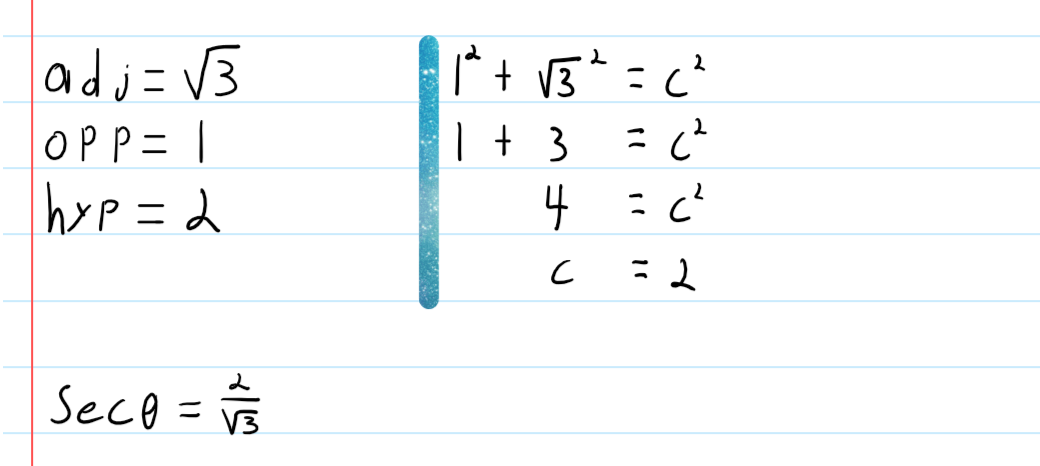 adj = √3
opp = 1
hyp = 2
1² + √3² = c²
1 + 3 = c²
4 = c²
c = 2
Secθ = 2/√3